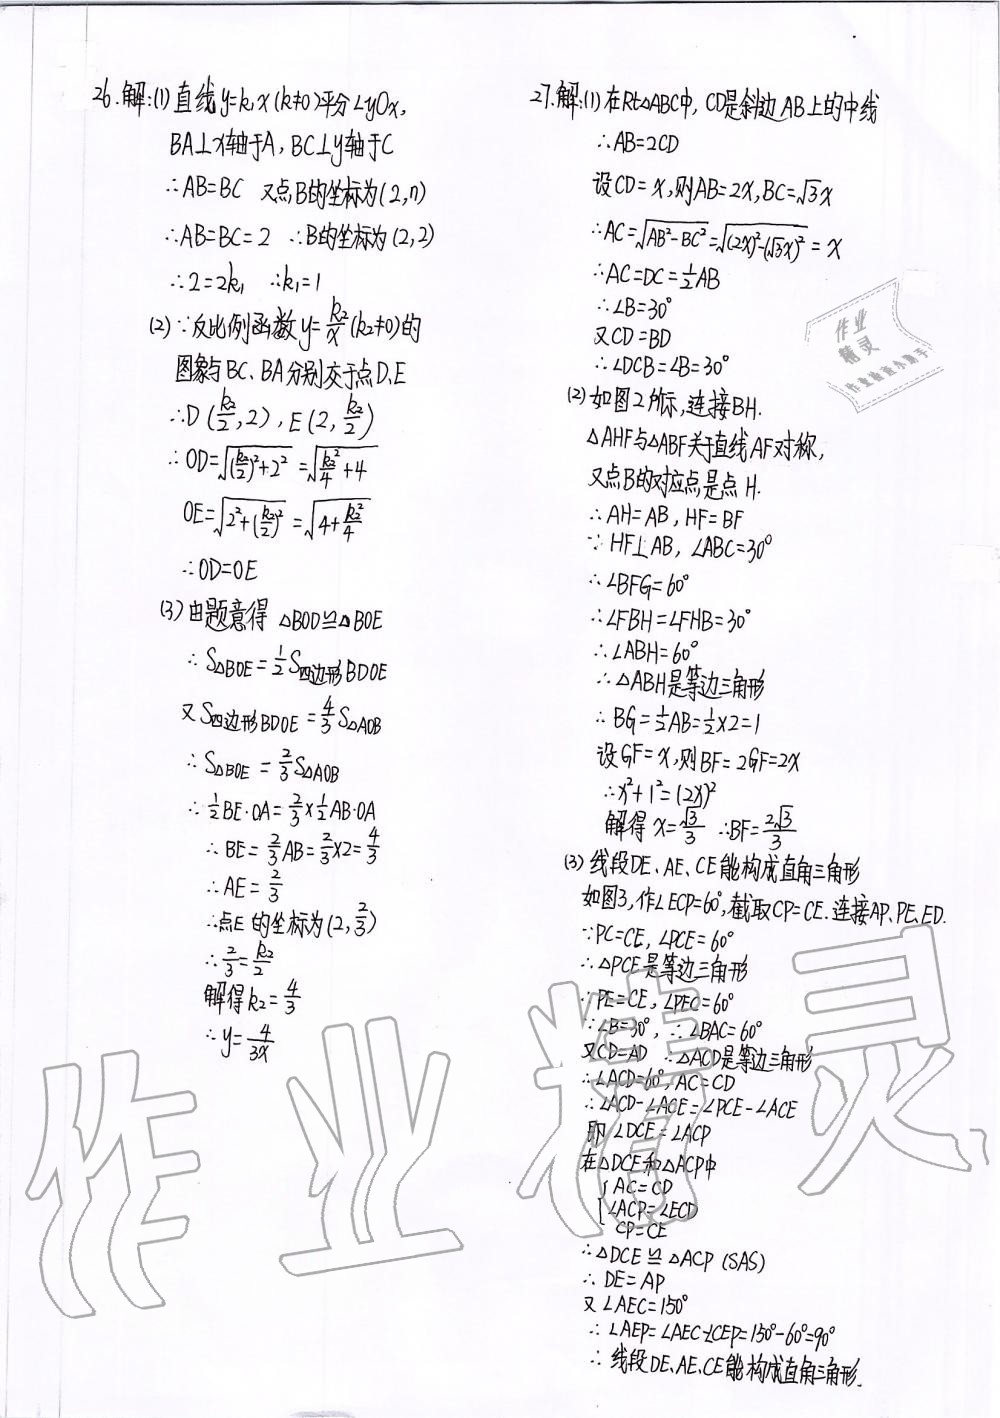 26.解:(1)直线y=k₁x(k≠0)平分∠yOx,
BA⊥x轴于A,BC⊥y轴于C
∴AB=BC 又点B的坐标为(2,n)
∴AB=BC=2 ∴B的坐标为(2,2)
∴2=2k₁ ∴k₁=1
(2)∵反比例函数y=k₂/x(k₂≠0)的
图象与BC、BA分别交于点D、E
∴D(k₂/2,2),E(2,k₂/2)
∴OD=√((k₂/2)²+2²)=√(k₂²/4+4)
OE=√(2²+(k₂/2)²)=√(4+k₂²/4)
∴OD=OE
(3)由题意得 △BOD≌△BOE
∴S△BOE=1/2S四边形BDOE
又S四边形BDOE=4/3S△AOB
∴S△BOE=2/3S△AOB
∴1/2BE·OA=2/3×1/2AB·OA
∴BE=2/3AB=2/3×2=4/3
∴AE=2/3
∴点E的坐标为(2,2/3)
∴2/3=k₂/2
解得k₂=4/3
∴y=4/3x
27.解:(1)在Rt△ABC中,CD是斜边AB上的中线
∴AB=2CD
设CD=x,则AB=2x,BC=√3x
∴AC=√(AB²-BC²)=√((2x)²-(√3x)²)=x
∴AC=DC=1/2AB
∴∠B=30°
又CD=BD
∴∠DCB=∠B=30°
(2)如图2所标,连接BH.
△AHF与△ABF关于直线AF对称,
又点B的对应点是点H.
∴AH=AB,HF=BF
∵HF⊥AB,∠ABC=30°
∴∠BFG=60°
∴∠FBH=∠FHB=30°
∴∠ABH=60°
∴△ABH是等边三角形
∴BG=1/2AB=1/2×2=1
设GF=x,则BF=2GF=2x
∴x²+1²=(2x)²
解得x=√3/3 ∴BF=2√3/3
(3)线段DE、AE、CE能构成直角三角形
如图3,作∠ECP=60°,截取CP=CE.连接AP、PE、ED.
∵PC=CE,∠PCE=60°
∴△PCE是等边三角形
∴PE=CE,∠PEC=60°
∵∠B=30°,∴∠BAC=60°
又CD=AD ∴△ACD是等边三角形
∴∠ACD=60°,AC=CD
∴∠ACD-∠ACE=∠PCE-∠ACE
即∠DCE=∠ACP
在△DCE和△ACP中
AC=CD
∠ACP=∠ECD
CP=CE
∴△DCE≌△ACP(SAS)
∴DE=AP
又∠AEC=150°
∴∠AEP=∠AEC-∠CEP=150°-60°=90°
∴线段DE、AE、CE能构成直角三角形.
作业
精灵
作业检查小助手
作业精灵